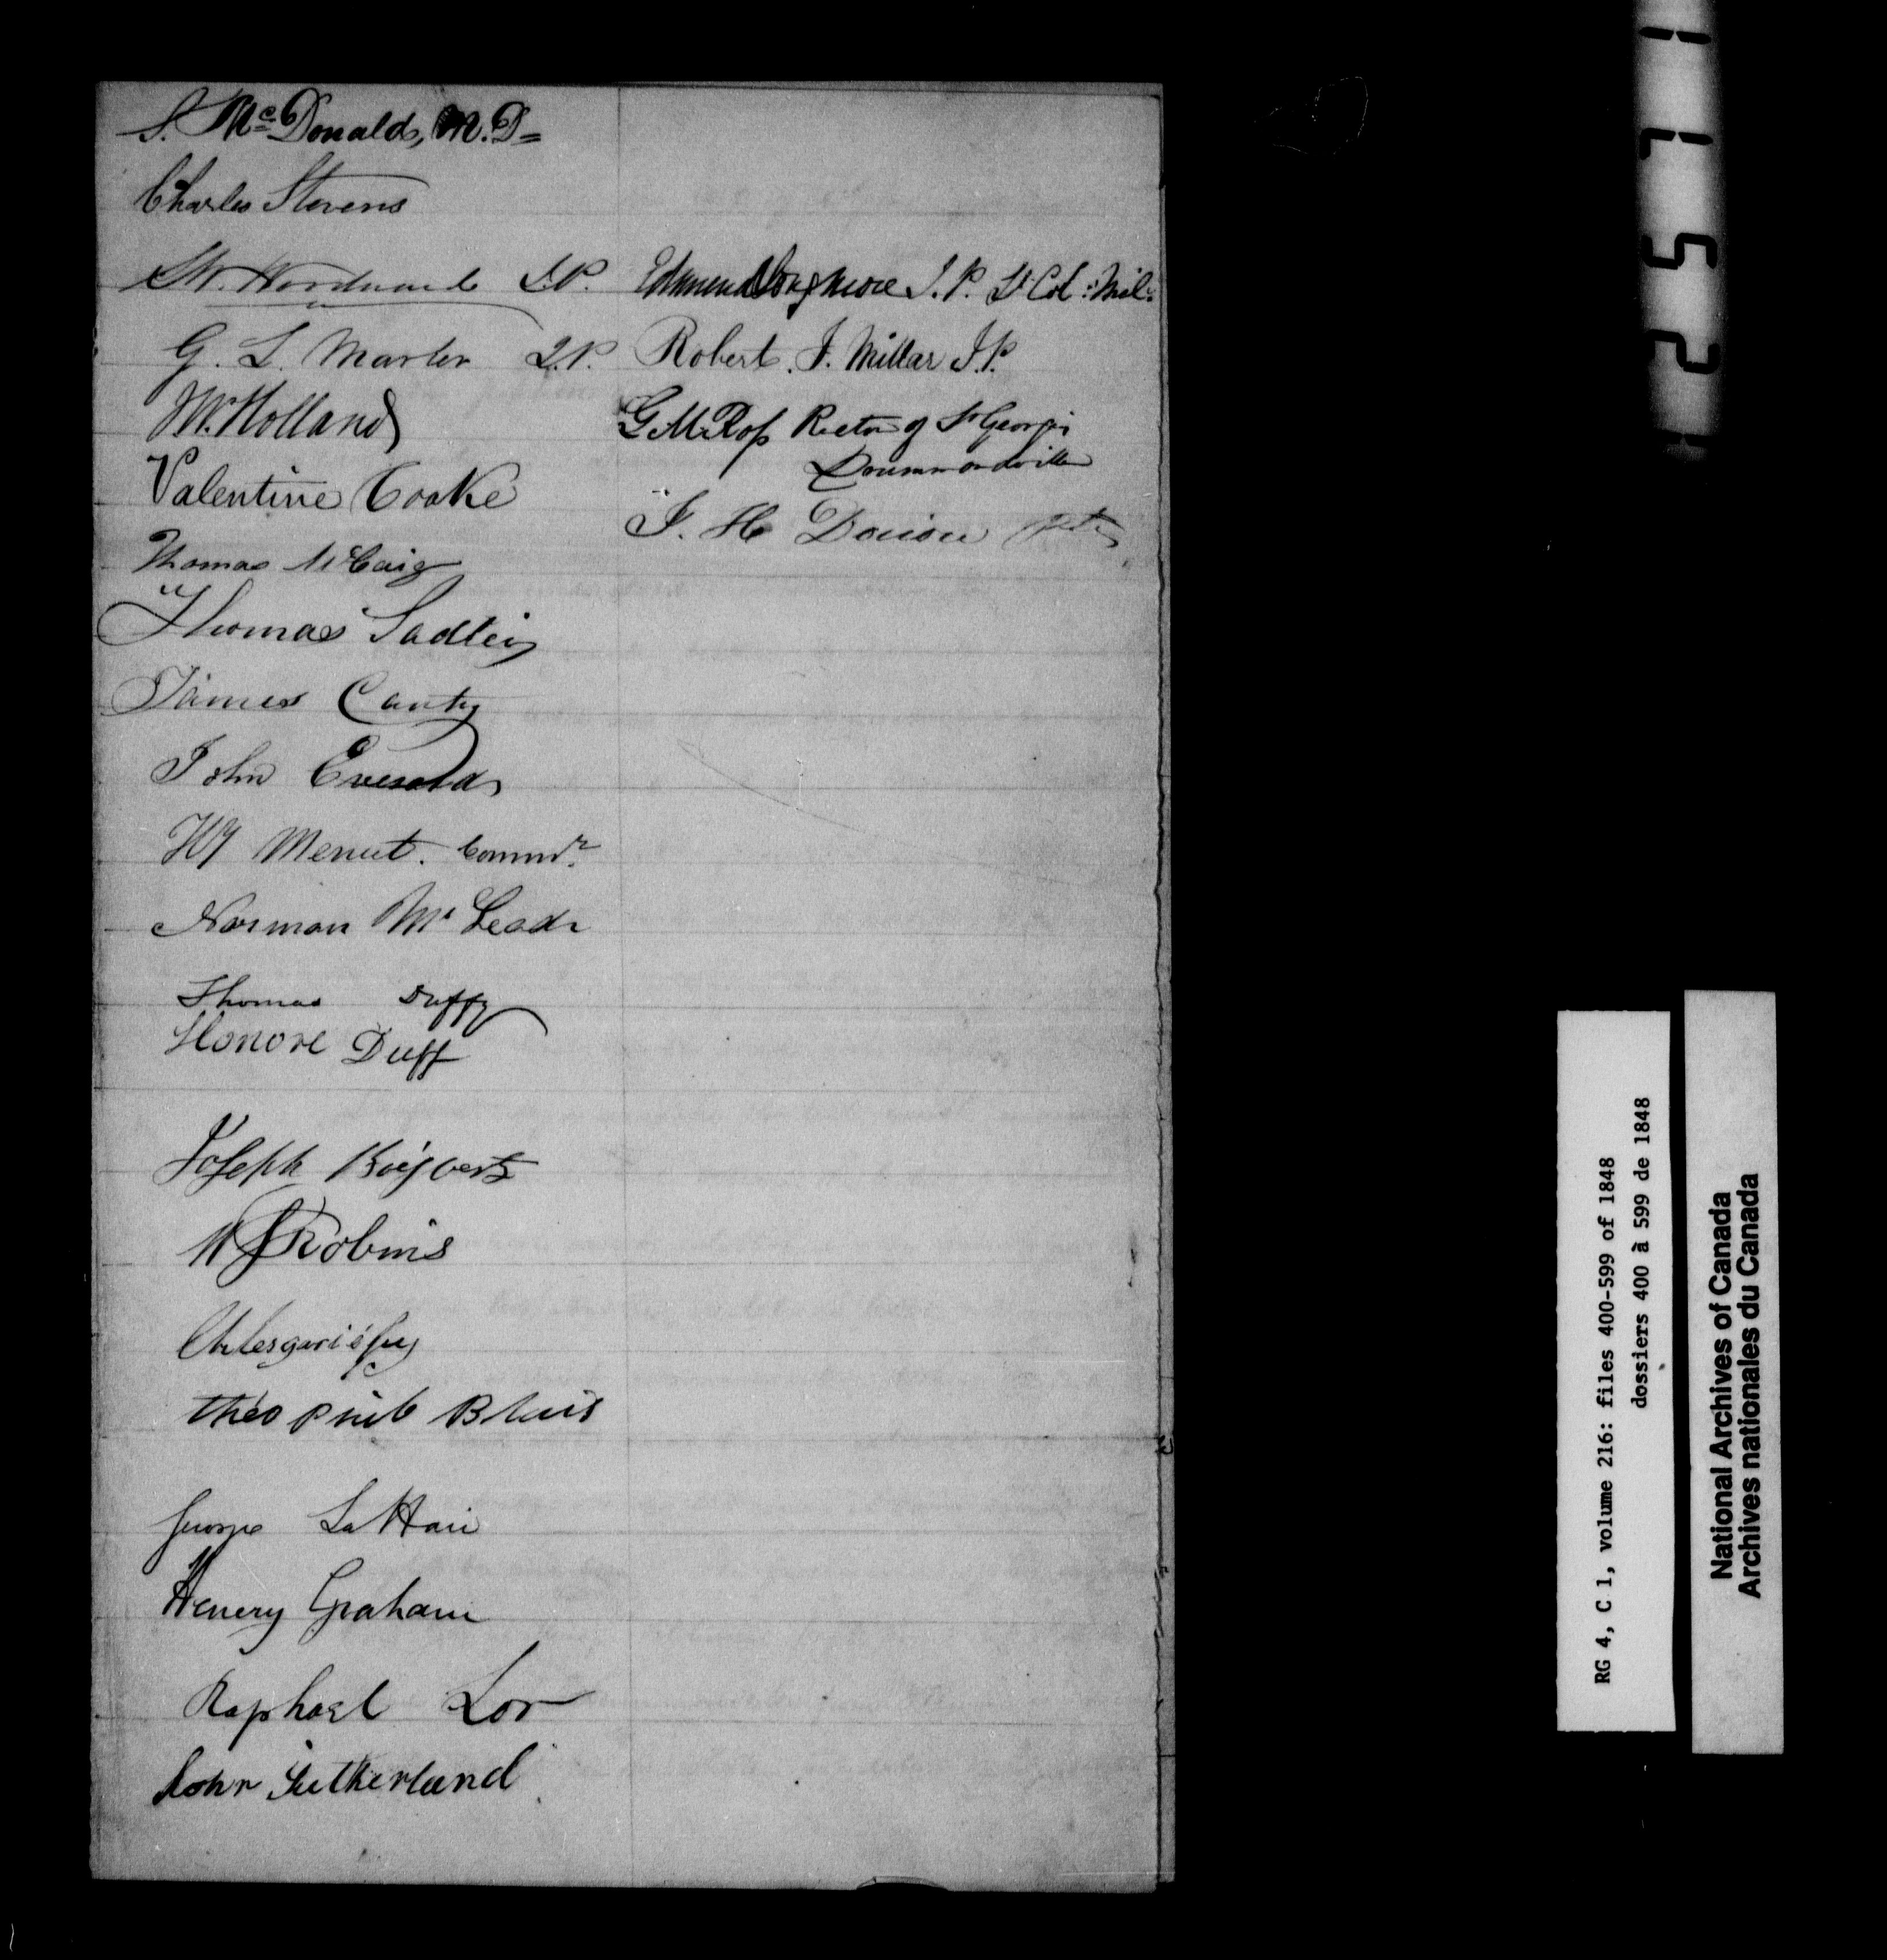 S. McDonald, M.D.
Charles Stevens
J.P.
G. L. Marler J.P.
Holland
Valentine Cooke
Thomas McCaig
Thomas Sadleir
James Canty
John
Hy Menut. Commr.
Norman McLeod
Thomas Duffy
Honore Duff
Joseph
Robins
Théophile Blais
George LaHaie
Henery Graham
Raphael Lor
John Sutherland
Edmund Longmore J.P. Lt Col: Mil:
Robert. J. Millar J.P.
G M Ross Rector of St Georges
Drummondville
J. H. Dorion
1752
RG 4, C 1, volume 216: files 400-599 of 1848
dossiers 400 à 599 de 1848
National Archives of Canada
Archives nationales du Canada